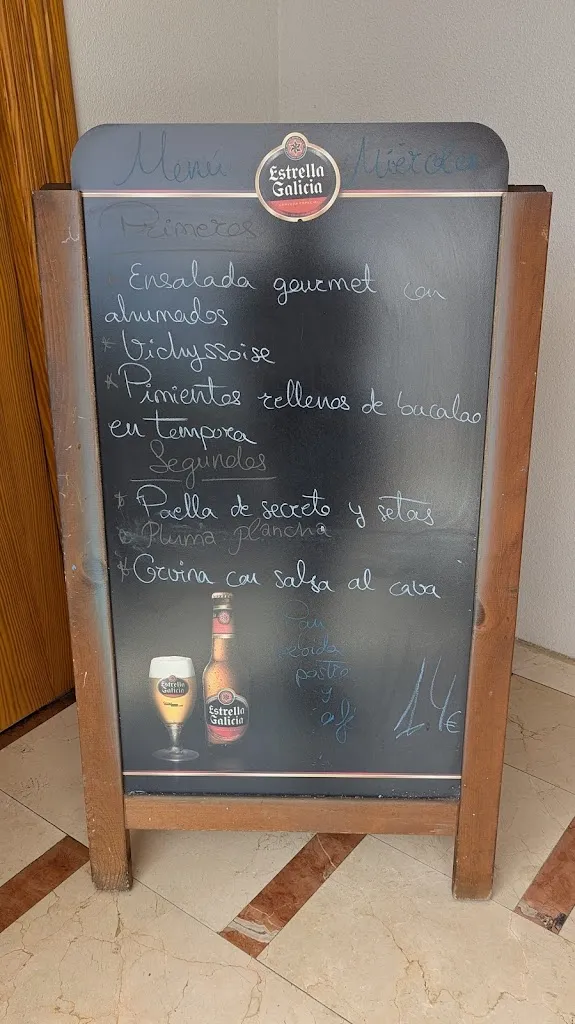 Menú Miércoles
Estrella
Galicia
Primeros
Ensalada gourmet con
ahumados
* Vichyssoise
* Pimientos rellenos de bacalao
en tempora
Segundos
* Paella de secreto y setas
Pluma plancha
* Corvina con salsa al cava
Pan
bebida
postre
y
14€
Estrella
Galicia
Estrella
Galicia